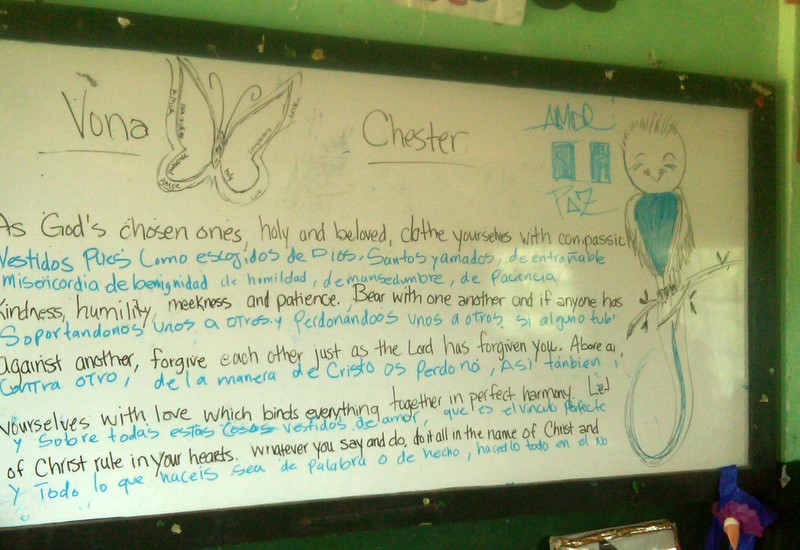 Vona
Chester
AMOR
PAZ
As God's chosen ones, holy and beloved, clothe yourselves with compassic
Vestidos Pues Como escojidos de Dios, Santos y amados, de entrañable
misericordia de benignidad de homildad, de mansedumbre, de Paciencia
Kindness, humility, meekness and patience. Bear with one another and if anyone has
Soportandonos unos a otros y Perdonándoos unos a otros si alguno tubi
against another, forgive each other just as the Lord has forgiven you. Above a
Contra otro, de la manera de Cristo os Perdonó, Asi tánbien
yourselves with love which binds everything together in perfect harmony. Let
y sobre todas estas Cosas vestidos de amor, que es el vinculo Perfecto
of Christ rule in your hearts. Whatever you say and do, do it all in the name of Christ and
y Todo lo que haceis sea de Palabra o de hecho, hacedlo todo en el No